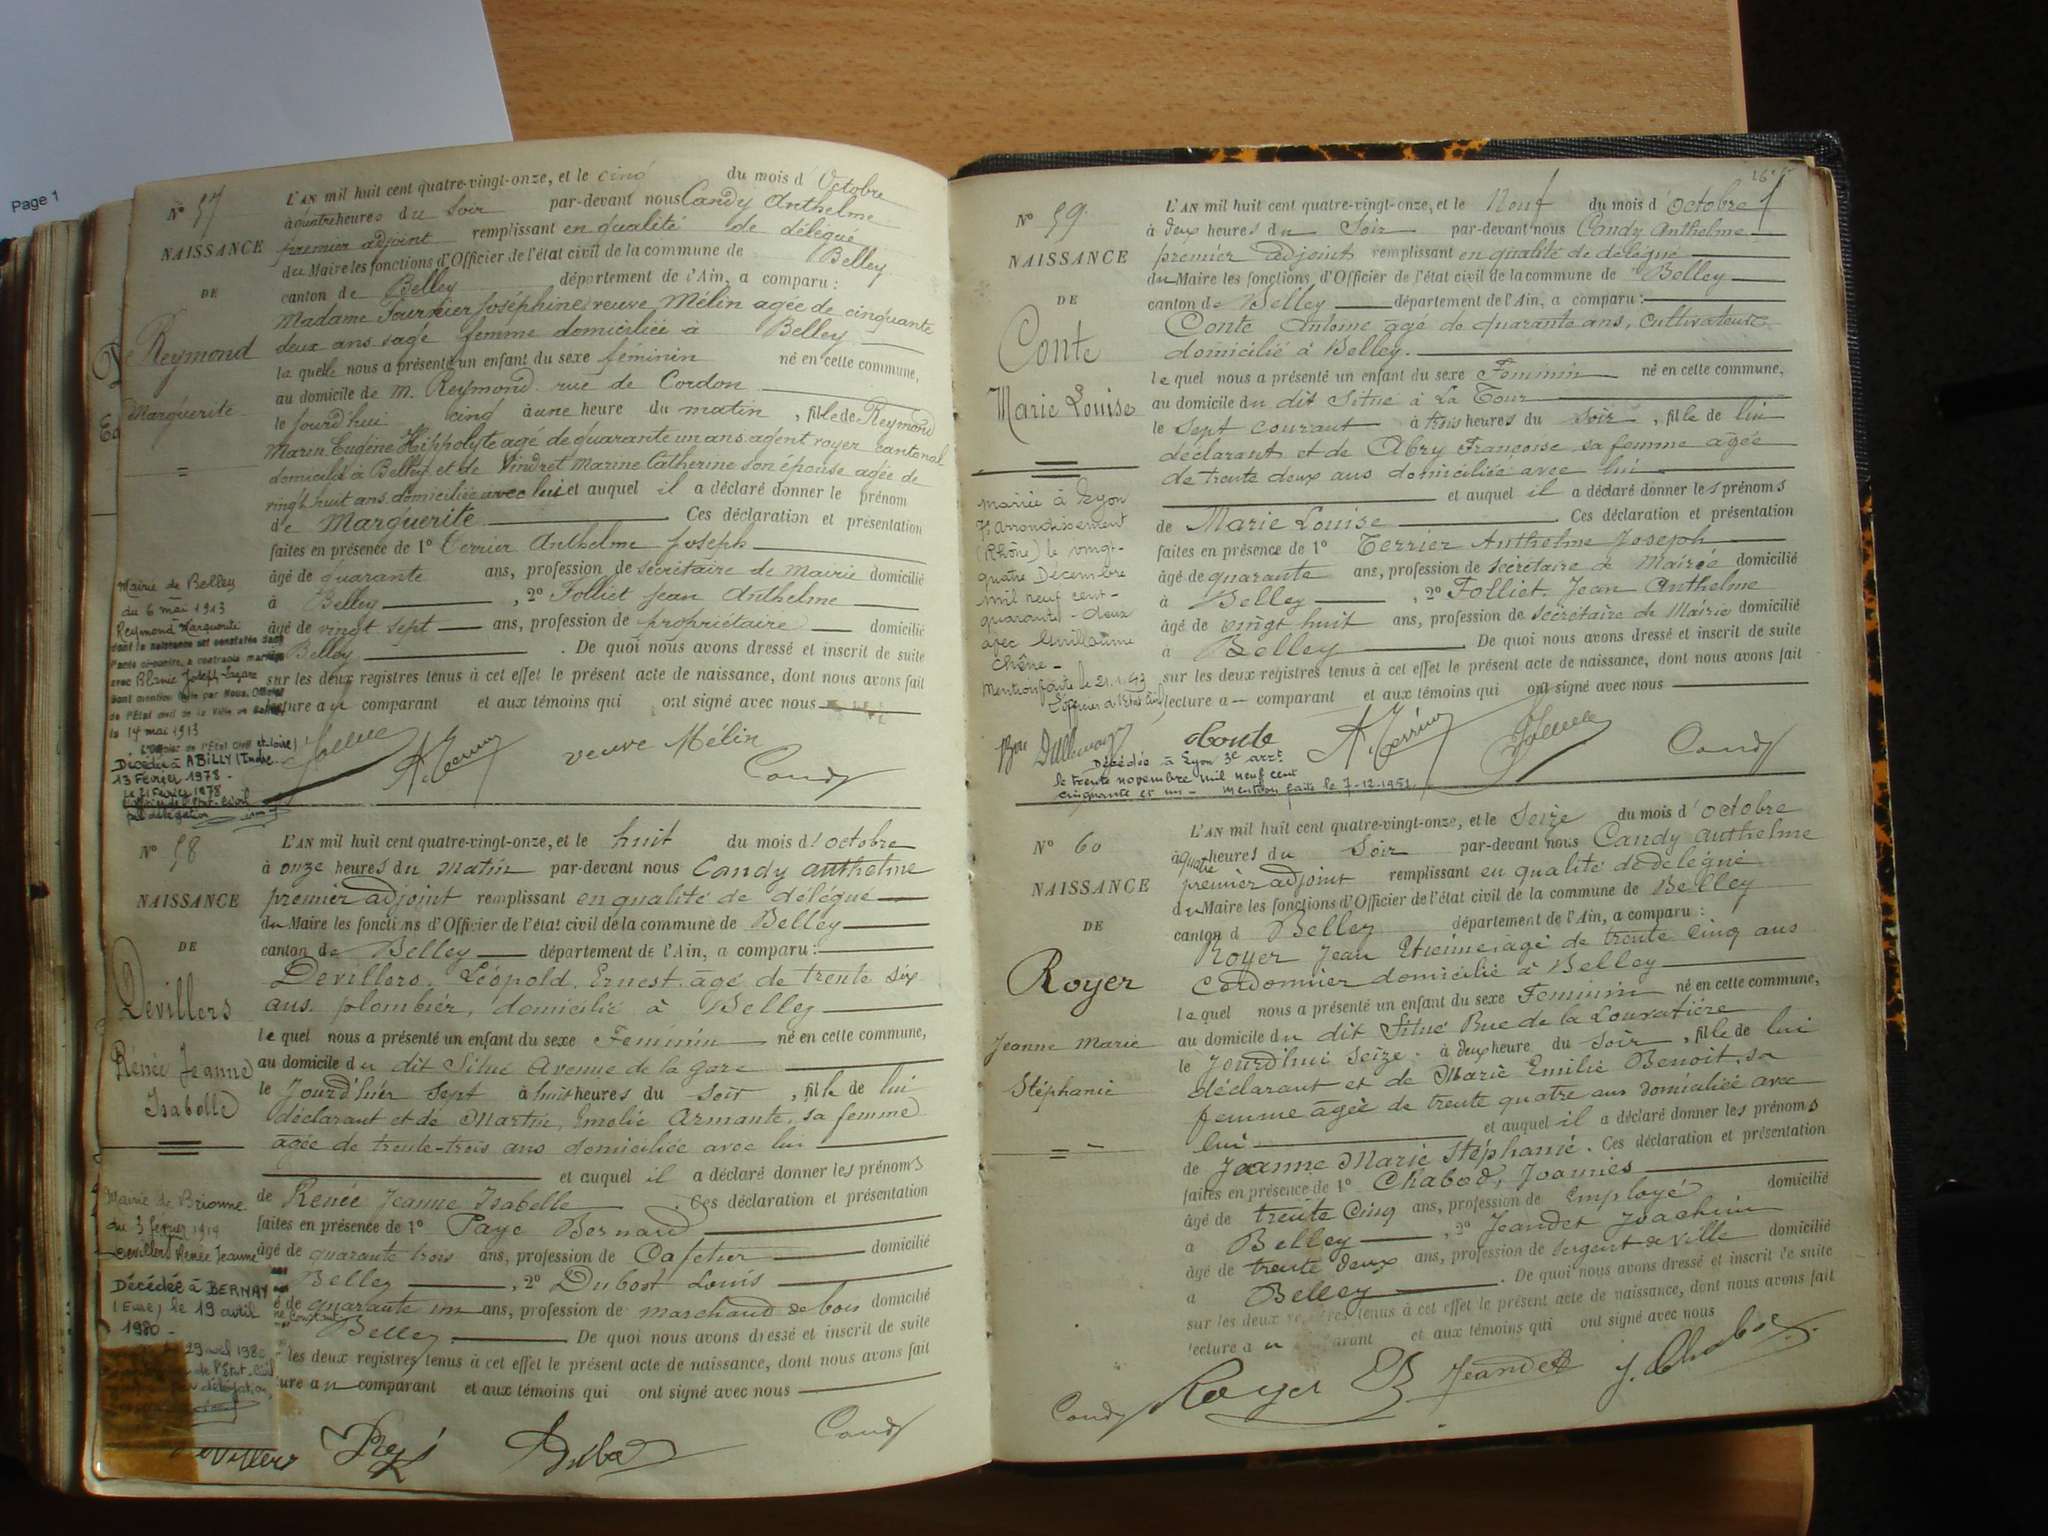 Page 1
N° 57
NAISSANCE
DE
Reymond
Marguerite
L'AN mil huit cent quatre-vingt-onze, et le cinq du mois d'Octobre
à quatre heures du Soir par-devant nous Candy Anthelme
premier adjoint remplissant en qualité de délégué
du Maire les fonctions d'Officier de l'état civil de la commune de Belley
canton de Belley département de l'Ain, a comparu :
Madame Fournier Joséphine veuve Mélin agée de cinquante
deux ans sage femme domiciliée à Belley
la quelle nous a présenté un enfant du sexe féminin né en cette commune,
au domicile de M. Reymond rue de Cordon
le jourd'hui cinq à une heure du matin, fille de Reymond
Marin Eugène Hippolyte agé de quarante un ans agent voyer cantonal
domicilié à Belley et de Vindret Marine Catherine son épouse agée de
vingt huit ans domiciliée avec lui et auquel il a déclaré donner le prénom
de Marguerite. Ces déclaration et présentation
faites en présence de 1° Terrier Anthelme Joseph
âgé de quarante ans, profession de secrétaire de Mairie domicilié
à Belley, 2° Folliet Jean Anthelme
âgé de vingt sept ans, profession de propriétaire domicilié
Belley. De quoi nous avons dressé et inscrit de suite
sur les deux registres tenus à cet effet le présent acte de naissance, dont nous avons fait
lecture au comparant et aux témoins qui ont signé avec nous
veuve Mélin
Candy
Mairie de Belley
du 6 mai 1913
Reymond Marguerite
dont la naissance est constatée dans
l'acte ci-contre, a contracté mariage
avec Blanc Joseph Lazare
Dont mention faite par Nous, Officier
de l'Etat civil de la Ville de Belley,
le 14 mai 1913
L'Officier de l'Etat Civil
Décédée à ABILLY (Indre et Loire)
13 Février 1978 -
Le 21 Février 1978
L'officier de l'Etat-Civil
par délégation
N° 58
NAISSANCE
DE
Devillers
Rénée Jeanne
Isabelle
L'AN mil huit cent quatre-vingt-onze, et le huit du mois d'octobre
à onze heures du Matin par-devant nous Candy anthelme
premier adjoint remplissant en qualité de délégué
du Maire les fonctions d'Officier de l'état civil de la commune de Belley
canton de Belley département de l'Ain, a comparu :
Devillers, Léopold, Ernest agé de trente six
ans, plombier, domicilié à Belley
le quel nous a présenté un enfant du sexe Féminin né en cette commune,
au domicile du dit Situé Avenue de la gare
le Jourd'hier Sept à huit heures du Soir, fille de lui
déclarant et de Martin, Amélie Armante, sa femme
âgée de trente-trois ans domiciliée avec lui
et auquel il a déclaré donner les prénoms
de Renée Jeanne Isabelle. Ces déclaration et présentation
faites en présence de 1° Page Bernard
âgé de quarante trois ans, profession de Cafetier domicilié
Belley, 2° Dubost Louis
de quarante un ans, profession de marchand de bois domicilié
Belley. De quoi nous avons dressé et inscrit de suite
les deux registres tenus à cet effet le présent acte de naissance, dont nous avons fait
ture au comparant et aux témoins qui ont signé avec nous
Candy
Mairie de Brionne
du 3 février 1919
Devillers Renée Jeanne
Décédée à BERNAY
(Eure) le 19 avril
1980 -
29 avril 1980
de l'Etat-Civil
par délégation,
N° 59
NAISSANCE
DE
Conte
Marie Louise
L'AN mil huit cent quatre-vingt-onze, et le Neuf du mois d'octobre
à deux heures du Soir par-devant nous Candy Anthelme
premier adjoint remplissant en qualité de délégué
du Maire les fonctions d'Officier de l'état civil de la commune de Belley
canton de Belley département de l'Ain, a comparu :
Conte Antoine âgé de quarante ans, cultivateur
domicilié à Belley.
le quel nous a présenté un enfant du sexe Feminin né en cette commune,
au domicile du dit Situé à La Tour
le Sept courant à trois heures du Soir, fille de lui
déclarant et de Abry Françoise sa femme âgée
de trente deux ans domiciliée avec lui
et auquel il a déclaré donner les prénoms
de Marie Louise. Ces déclaration et présentation
faites en présence de 1° Terrier Anthelme Joseph
âgé de quarante ans, profession de secrétaire de Mairie domicilié
à Belley, 2° Folliet Jean Anthelme
âgé de vingt huit ans, profession de secrétaire de Mairie domicilié
à Belley. De quoi nous avons dressé et inscrit de suite
sur les deux registres tenus à cet effet le présent acte de naissance, dont nous avons fait
lecture a comparant et aux témoins qui ont signé avec nous
Conte
Candy
mariée à Lyon
7e arrondissement
(Rhône) le vingt-
quatre Décembre
mil neuf cent-
quarante-deux
avec Guillaume
Chêne -
Mention faite le 21.1.43
L'officier de l'Etat Civil,
Décédée à Lyon 3e arrt
le trente novembre mil neuf cent
cinquante et un - Mention faite le 7-12-1951
N° 60
NAISSANCE
DE
Royer
Jeanne Marie
Stéphanie
L'AN mil huit cent quatre-vingt-onze, et le Seize du mois d'octobre
à quatre heures du Soir par-devant nous Candy anthelme
premier adjoint remplissant en qualité de délégué
du Maire les fonctions d'Officier de l'état civil de la commune de Belley
canton d Belley département de l'Ain, a comparu :
Royer Jean Etienne agé de trente cinq ans
Cordonnier domicilié à Belley
le quel nous a présenté un enfant du sexe Feminin né en cette commune,
au domicile du dit Situé Rue de la Louvatière
le Jourd'hui Seize à deux heure du Soir, fille de lui
déclarant et de Marie Emilie Benoit, sa
femme âgée de trente quatre ans domiciliée avec
lui et auquel il a déclaré donner les prénoms
de Jeanne Marie Stéphanie. Ces déclaration et présentation
faites en présence de 1° Chabod, Joannès
âgé de trente cinq ans, profession de Employé domicilié
à Belley, 2° Jeandet Joachim
âgé de trente deux ans, profession de Sergent de Ville domicilié
à Belley. De quoi nous avons dressé et inscrit de suite
sur les deux registres tenus à cet effet le présent acte de naissance, dont nous avons fait
lecture au comparant et aux témoins qui ont signé avec nous
Candy Royer Jeandet J. Chabod